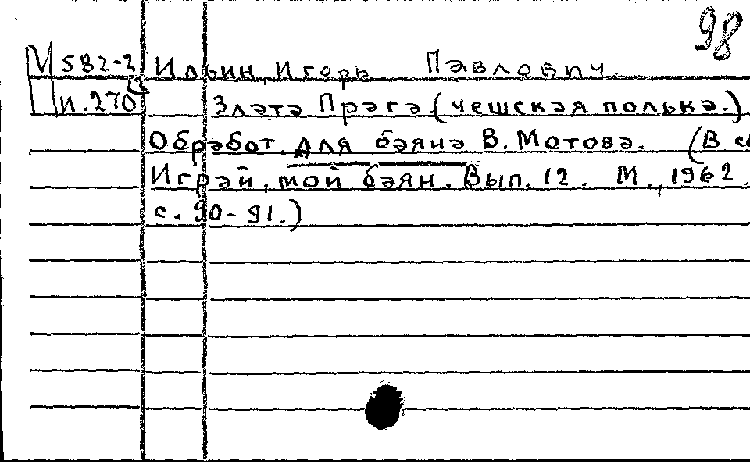 98
М 582-2 Ильин, Игорь Павлович
И.270 Злата Прага (чешская полька.)
Обработ. для баяна В. Мотова. (В
Играй, мой баян. Вып. 12. М., 1962.
с. 90-91.)